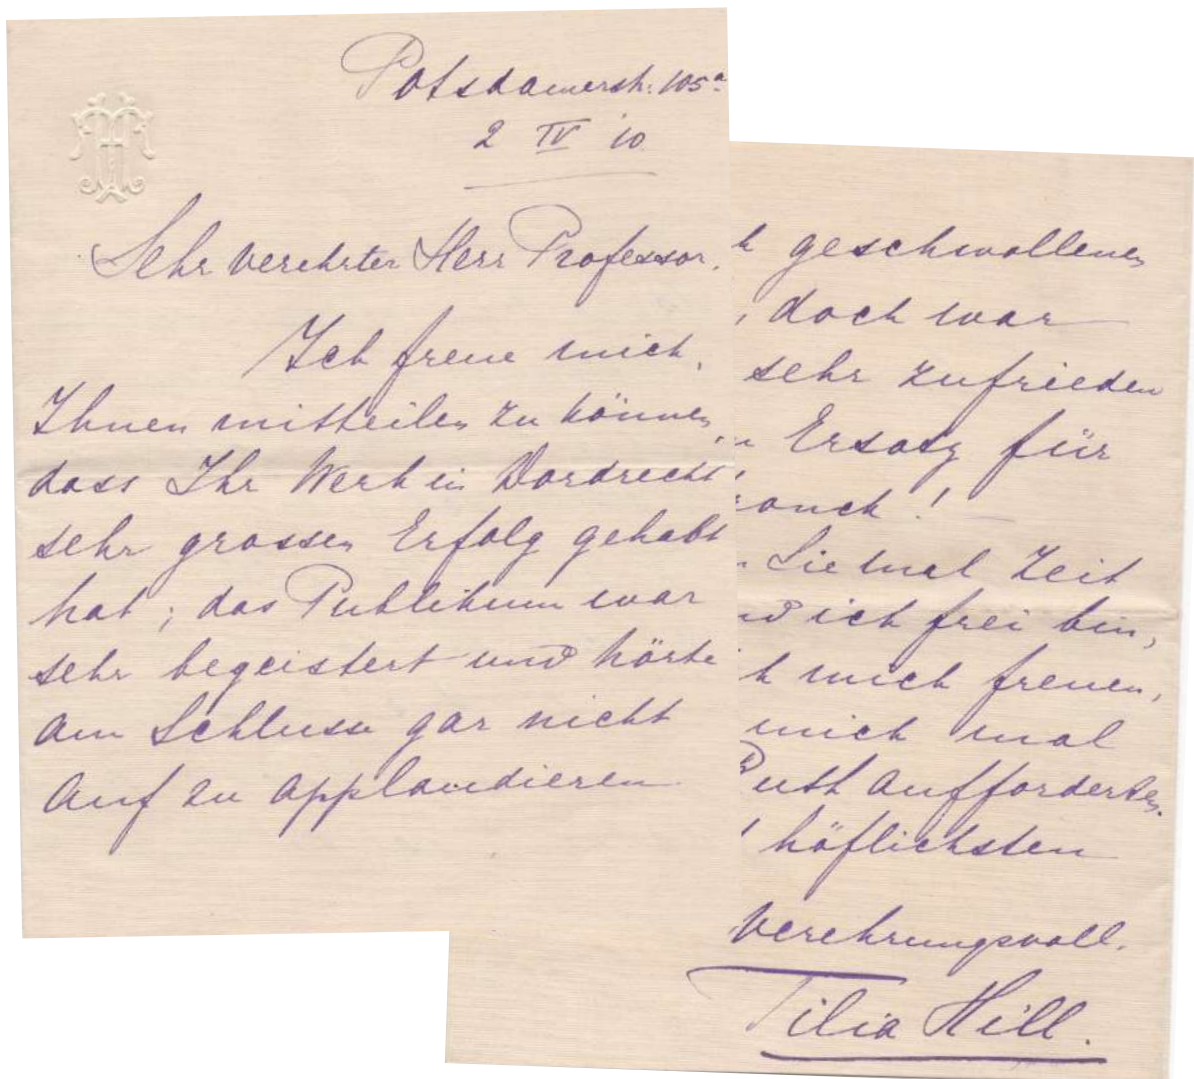 TH
Potsdamerstr. 105a
2 IV 10
Sehr verehrter Herr Professor.
Ich freue mich,
Ihnen mittheilen zu können,
dass Ihr Werk in Dordrecht
sehr grossen Erfolg gehabt
hat; das Publikum war
sehr begeistert und hörte
am Schlusse gar nicht
auf zu applaudieren
geschwollenen
, doch war
sehr zufrieden
Ersatz für
!
Sie mal Zeit
ich frei bin,
mich freuen,
mich mal
auffordertey.
höflichsten
verehrungsvoll.
Tilia Hill.